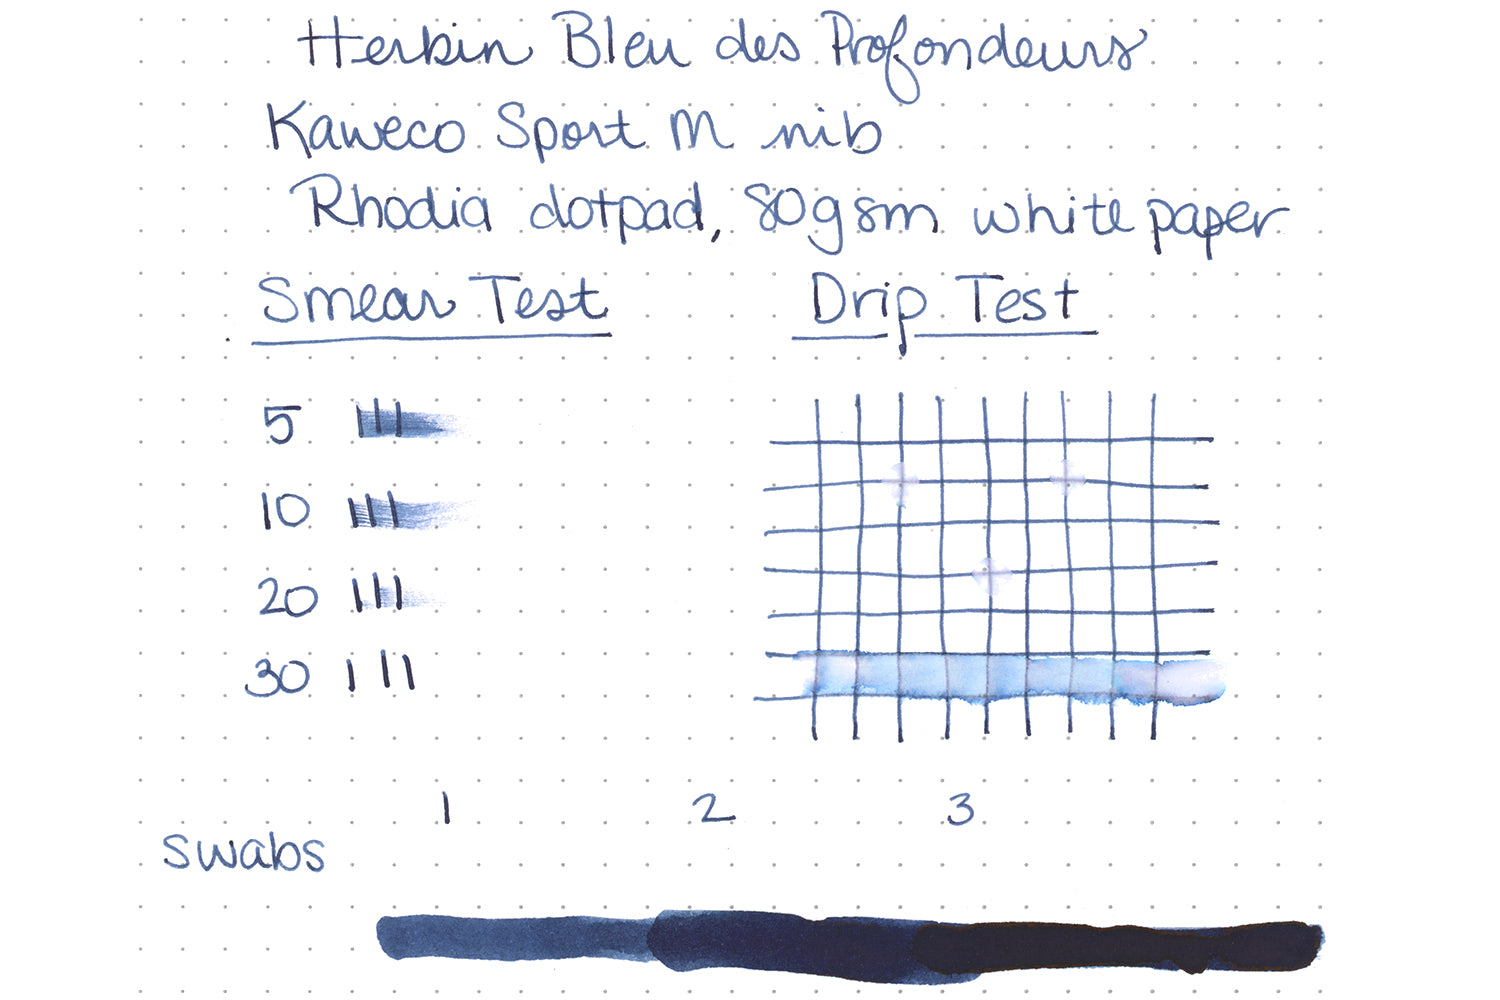 Herbin Bleu des Profondeurs
Kaweco Sport M nib
Rhodia dotpad, 80gsm white paper
Smear Test
Drip Test
5
10
20
30
1 2 3
swabs